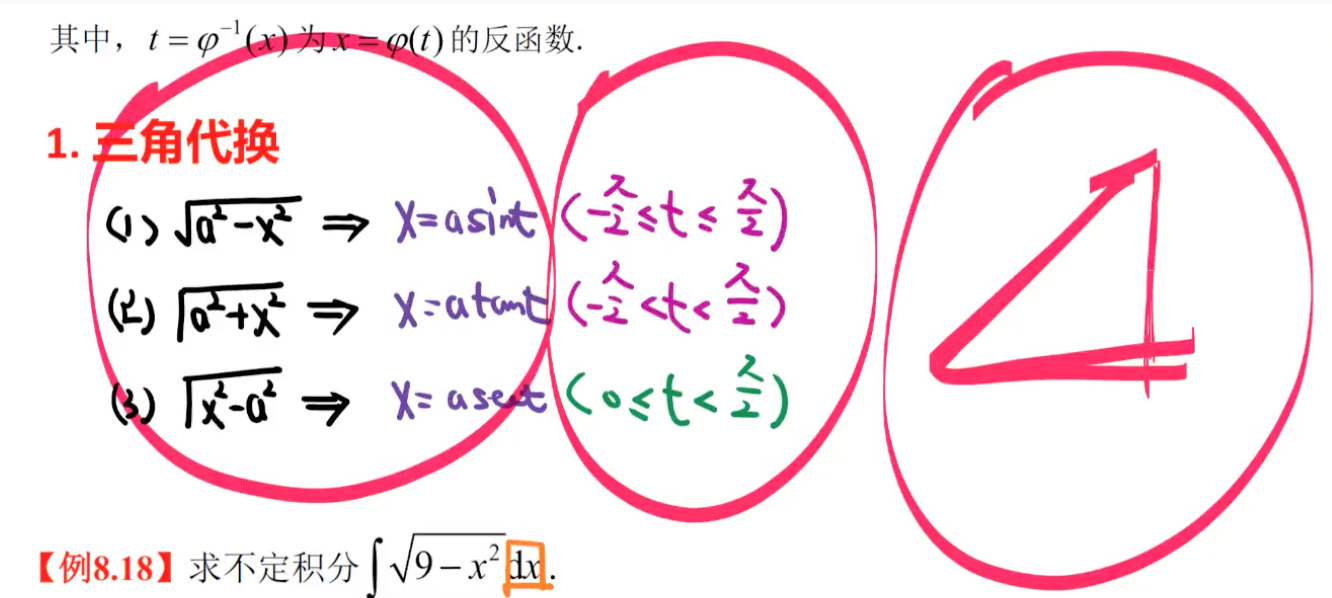 其中，t = φ⁻¹(x) 为 x = φ(t) 的反函数.
1. 三角代换
(1) √(a²-x²) ⇒ x=asint (-π/2≤t≤π/2)
(2) √(a²+x²) ⇒ x=atant (-π/2<t<π/2)
(3) √(x²-a²) ⇒ x=asect (0≤t<π/2)
【例8.18】求不定积分 ∫√(9-x²)dx.